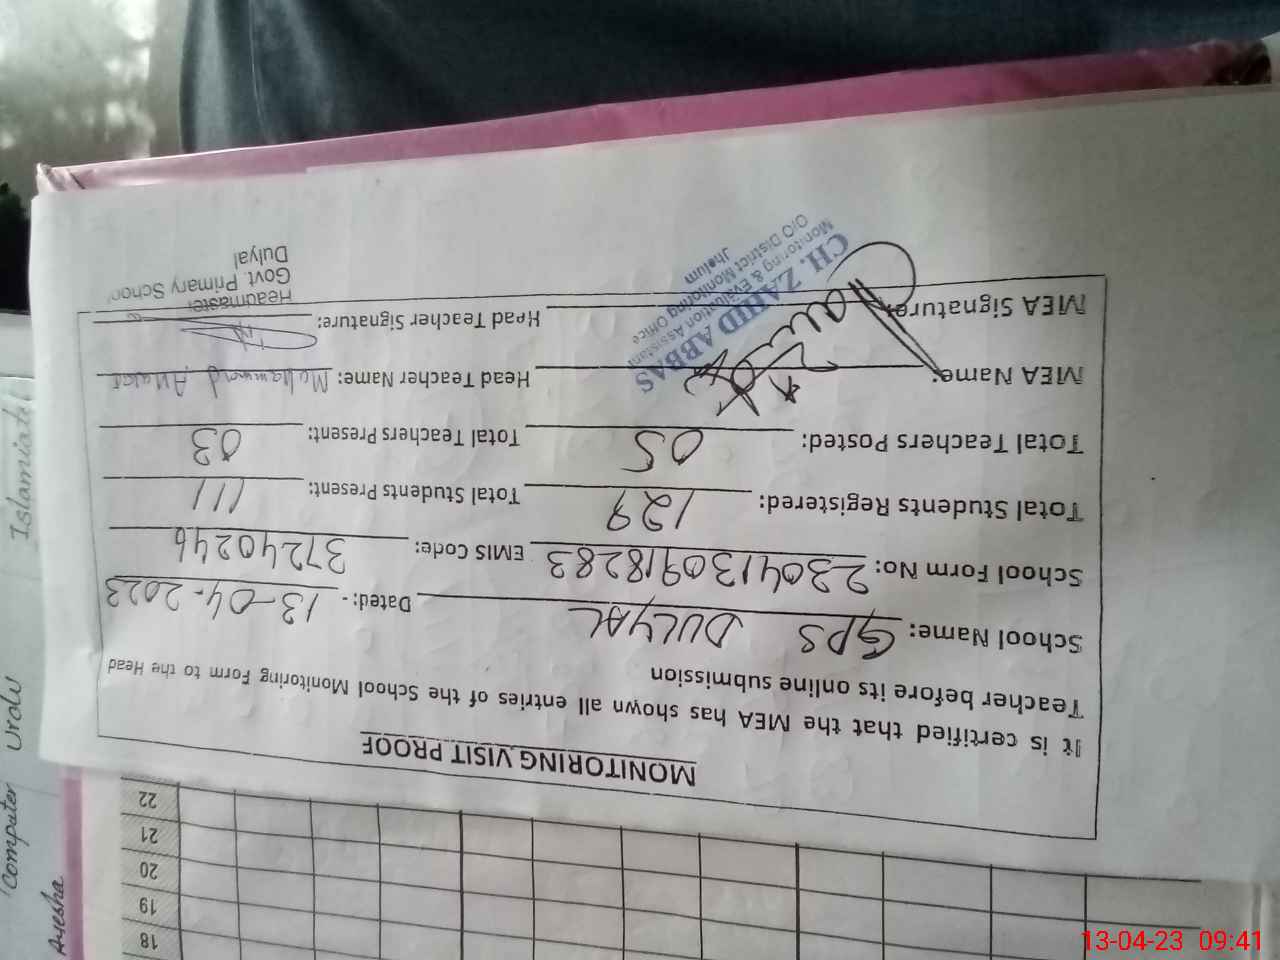 MONITORING VISIT PROOF
It is certified that the MEA has shown all entries of the School Monitoring Form to the Head
Teacher before its online submission
School Name: GPS DULYAL Dated:- 13-04-2023
School Form No: 2304130918283 EMIS Code: 37240246
Total Students Registered: 129 Total Students Present: 111
Total Teachers Posted: 05 Total Teachers Present: 03
MEA Name: Head Teacher Name: Mohammad
MEA Signature: Head Teacher Signature:
CH. ZAHID ABBAS
Monitoring & Evaluation Assistant
O/O District Monitoring Office
Jhelum
Headmaster
Govt. Primary School
Dulyal
22
21
20
19
18
Islamiat
Computer Urdu
Ayesha
13-04-23 09:41